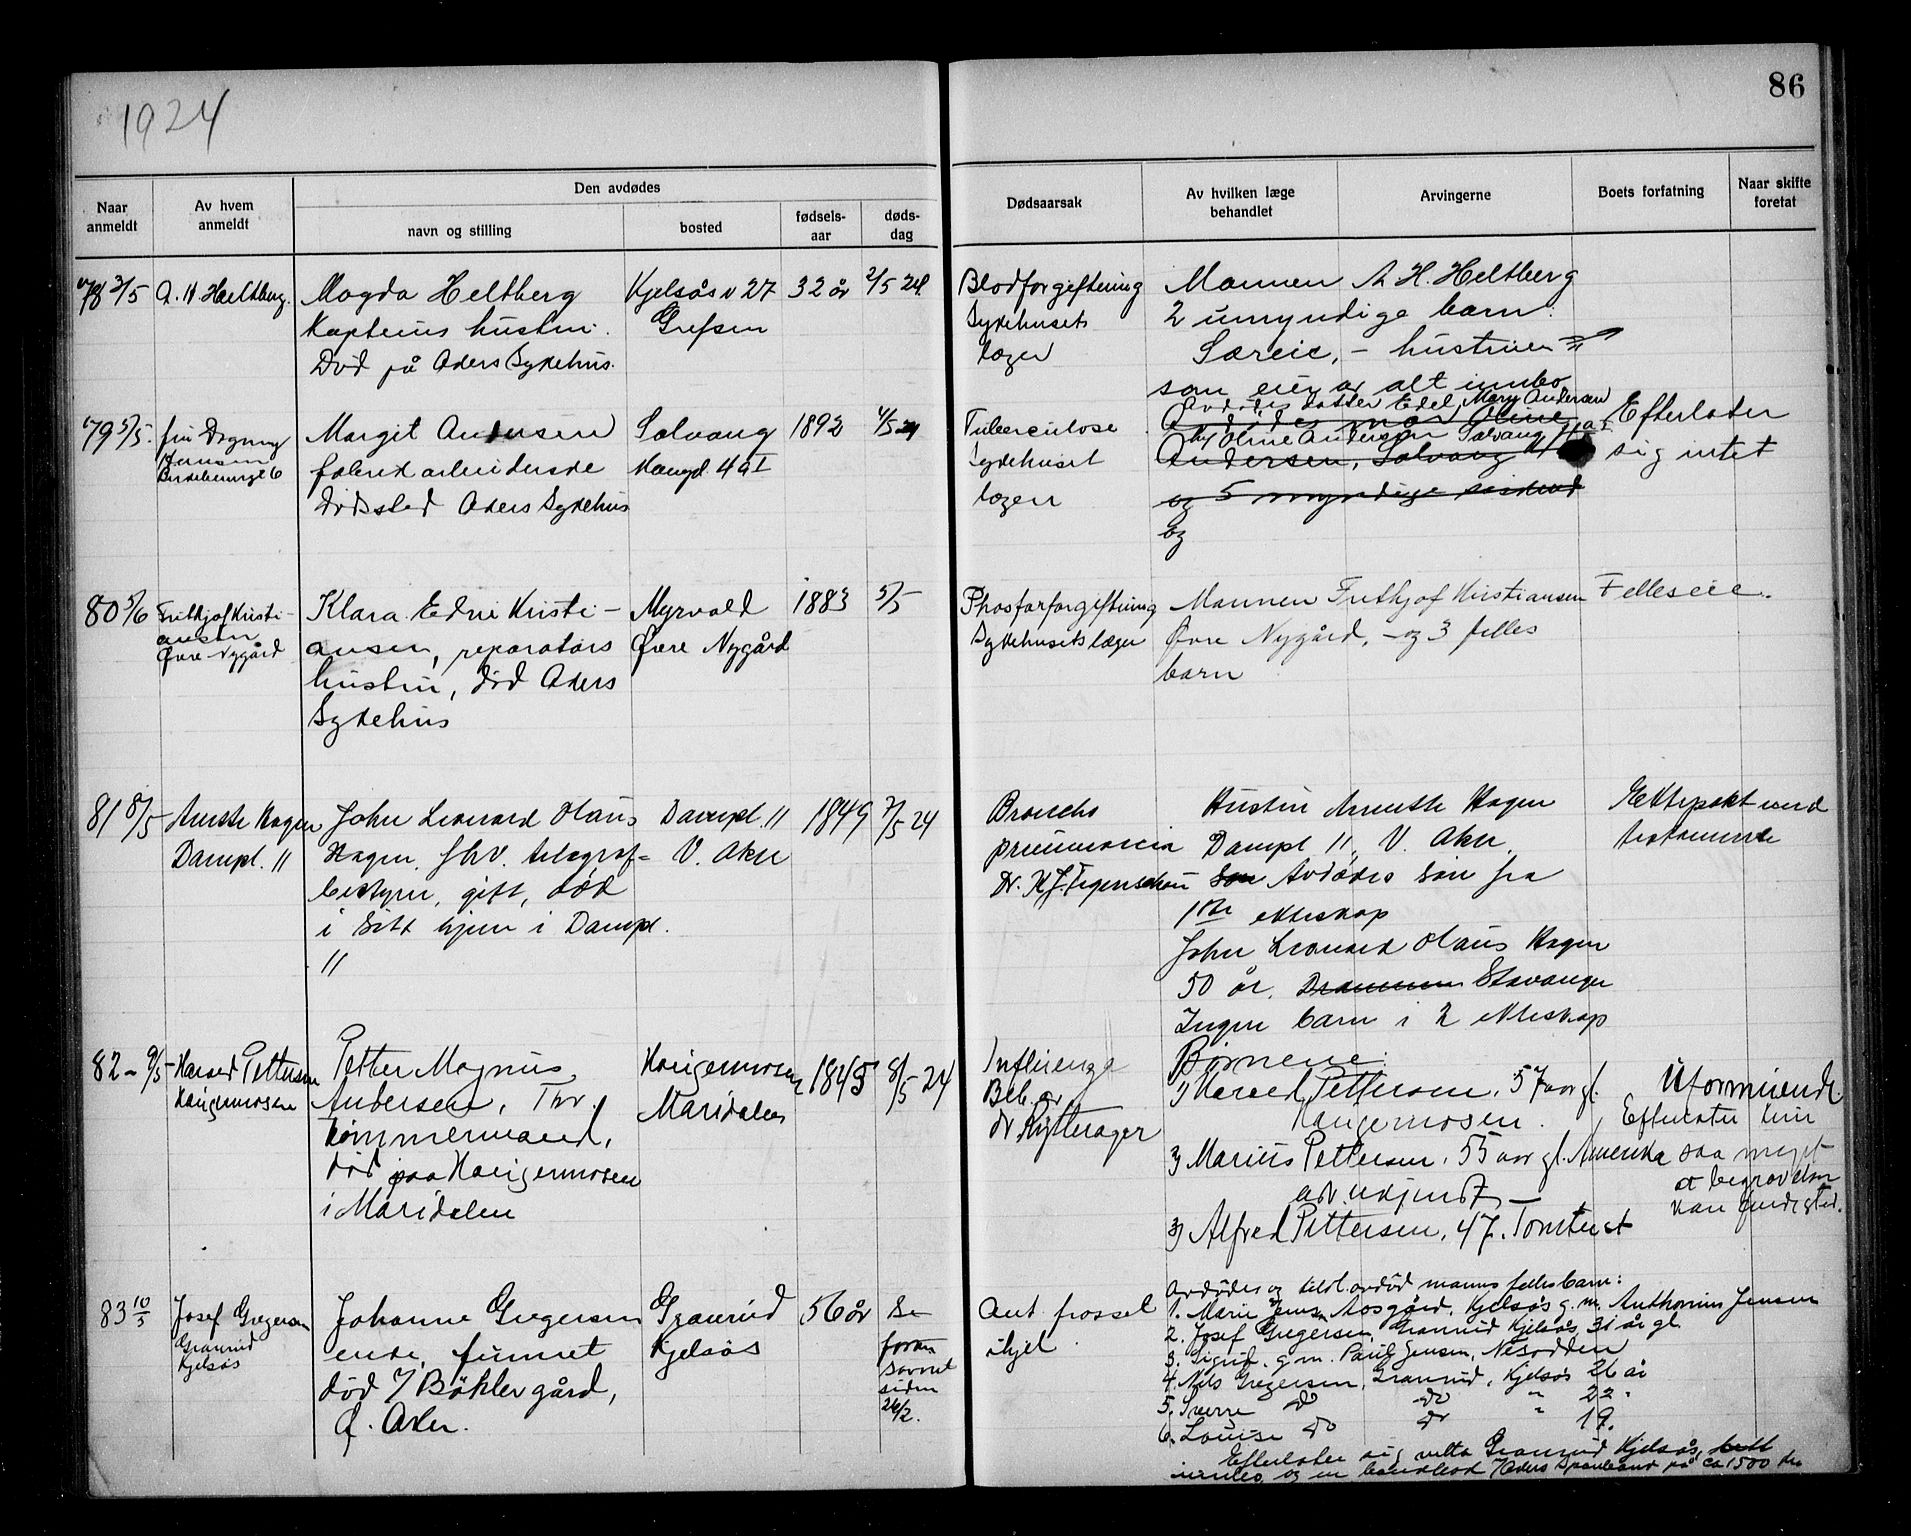 1924
86
Naar anmeldt
Av hvem anmeldt
Den avdødes
navn og stilling
bosted
fødsels-aar
døds-dag
Dødsaarsak
Av hvilken læge behandlet
Arvingerne
Boets forfatning
Naar skifte foretat
78 3/5 A. H. Heltberg. Magda Heltberg Kjelsås v 27 32 år 2/5 24
Kapteins hustru. Grefsen
Død på Akers Sykehus.
Blodforgiftning Mannen A H. Heltberg
Sykehusets 2 umyndige barn.
læger Særeie, - hustruen
som eier av alt innbo
79 5/5. fru Dagny Margit Andersen Solvang 1892 4/5 24
Jensen fabrikarbeiderske
Dødssted Akers Sykehus
Tuberculose Avdødes datter Edel Mary Andersen Efterlater
Avdødes mor Oline
Sykehuset Oline Andersen Solvang sig intet
Andersen, Solvang
lægen og 5 myndige
og
80 5/6 Frithjof Kristi- Klara Edni Kristi- Myrvold 1883 5/5
ansen ansen, reparatørs Øvre Nygård
Øvre Nygård hustru, død Akers
Sykehus
Phosforforgiftning Mannen Frithjof Kristiansen Felleseie.
Sykehusets læger Øvre Nygård, - og 3 felles
barn
81 8/5 Hagen John Leonard Olaus Dampl. 11 1849 7/5 24
Dampl. 11 Hagen, fhv. telegraf- V. Aker
bestyrer, gift, død
i sitt hjem i Dampl.
11
Broncho Hustru Hagen Ektepakt med
pneumonia Dampl 11, V. Aker. testamente
Dr. K. J. Figenschau Son Avdødes søn fra
1ste ekteskap
John Leonard Olaus Hagen
50 år. Drammen Stavanger
Ingen barn i 2 ekteskap
82 - 9/5 - Pettersen Petter Magnus 1845 8/5 24
Andersen, fhv. Maridalen
tømmermand,
død paa
i Maridalen
Influenza Børnene:
Beh. av 1) Pettersen, 57 aar gl. Uformuende.
dr Rytterager Efterlater kun
2) Marius Pettersen, 55 aar gl. Amerika saa meget
adr. ukjendt - at begravelsen
kan
3) Alfred Pettersen, 47. Tomter st
83 10/5 Josef Gregersen Johanne Gregersen Granrud 56 år
Granrud enke, funnet Kjelsås foran
Kjelsås død i Bökler gård, savnet
Ø. Aker. siden
26/2.
Ant. frosset Avdødes og tidl. avdød manns felles barn:
ihjel 1. Marie Jensen Aasgård, Kjelsås g. m. Anthonius Jensen
2. Josef Gregersen, Granrud Kjelsås 31 år gl
3. Sigrid. g. m. Paul Jensen, Nesodden
4. Nils Gregersen, Granrud, Kjelsås 26 år
5. Sverre do do " 22 "
6. Louise do do " 19.
Efterlater sig Granrud Kjelsås,
og en bankbok i Akers Sparebank på ca 1500 kr